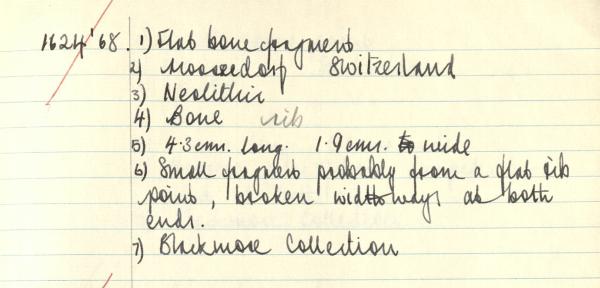 1624'68. 1) Flat bone fragment
2) Moosedorf Switzerland
3) Neolithic
4) Bone rib
5) 4.3cm. long. 1.9cms. wide
6) Small fragment probably from a flat rib
point, broken widthways at both
ends.
7) Blackmore Collection